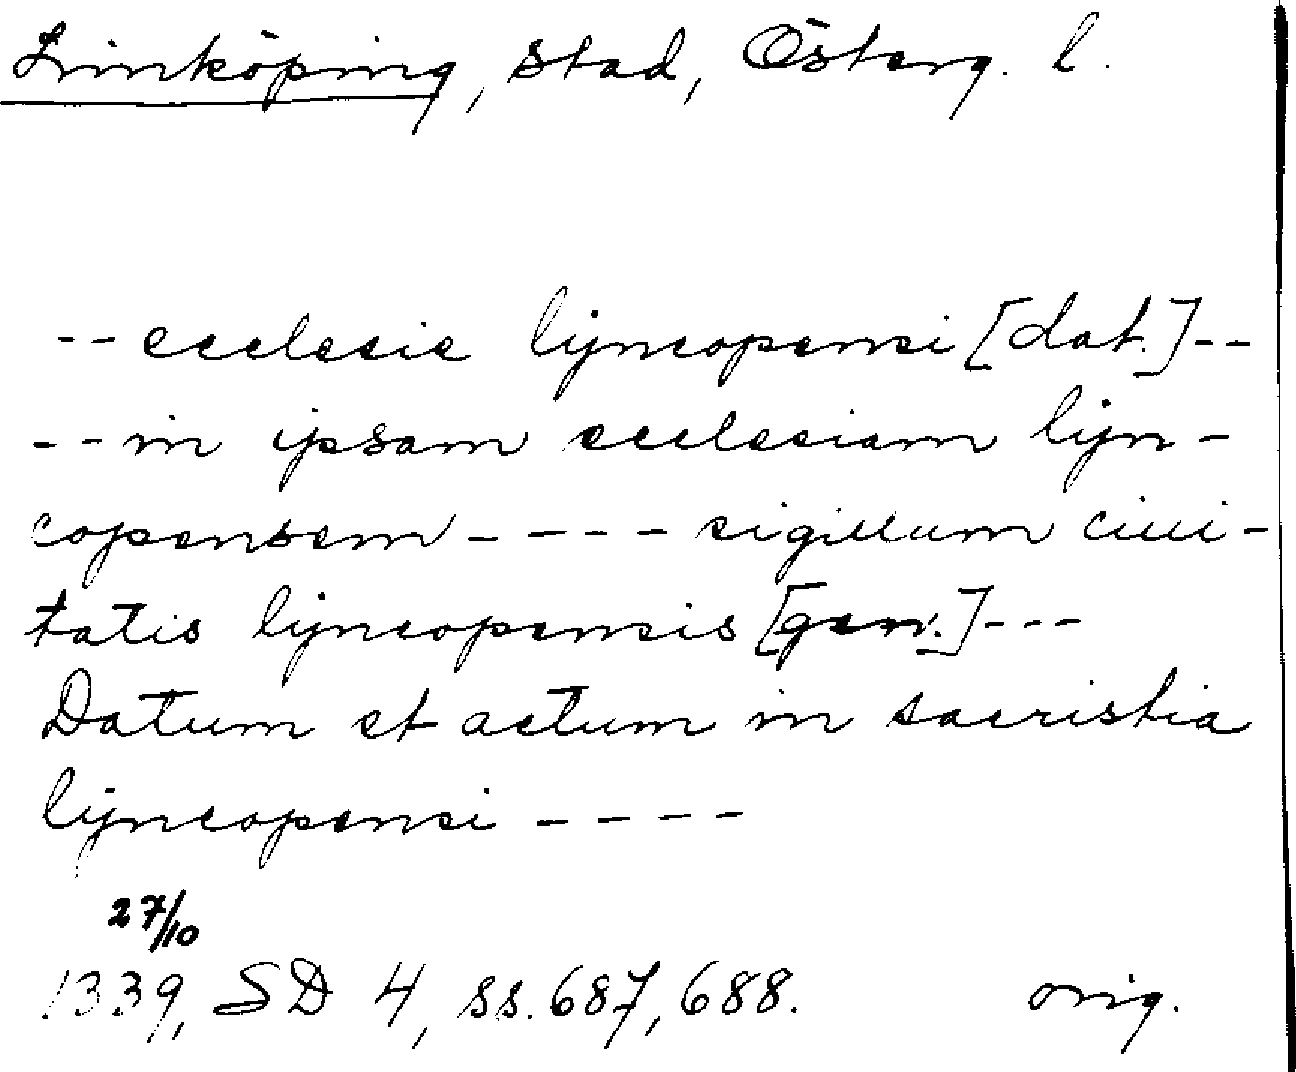 Linköping, stad, Österg. l.
-- ecclesie lijncopensi [dat.] --
-- in ipsam ecclesiam lijn-
copensem - - - - sigillum ciui-
tatis lijncopensis [gen.] ---
Datum et actum in sacristia
lijncopensi - - - -
27/10
1339, SD 4, ss. 687, 688. orig.